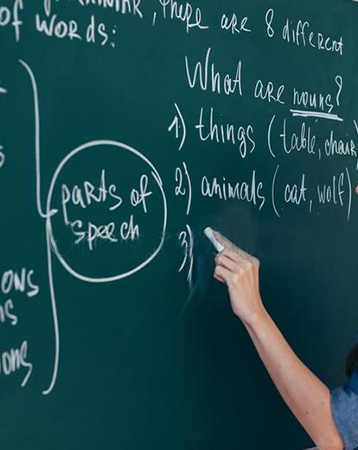 there are 8 different
of words:
What are nouns?
1) things (table, chair
2) animals (cat, wolf)
3)
parts of
speech
ons
s
ons